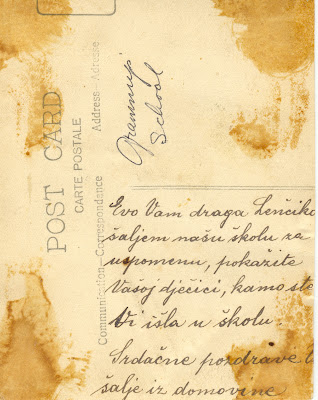 POST CARD
CARTE POSTALE
Communication – Correspondence
Address - Adresse
School
Evo Vam draga Lenčiko
šaljem našu školu za
uspomenu, pokažite
Vašoj dječici, kamo ste
Vi išla u školu.
Srdačne pozdrave
šalje iz domovine